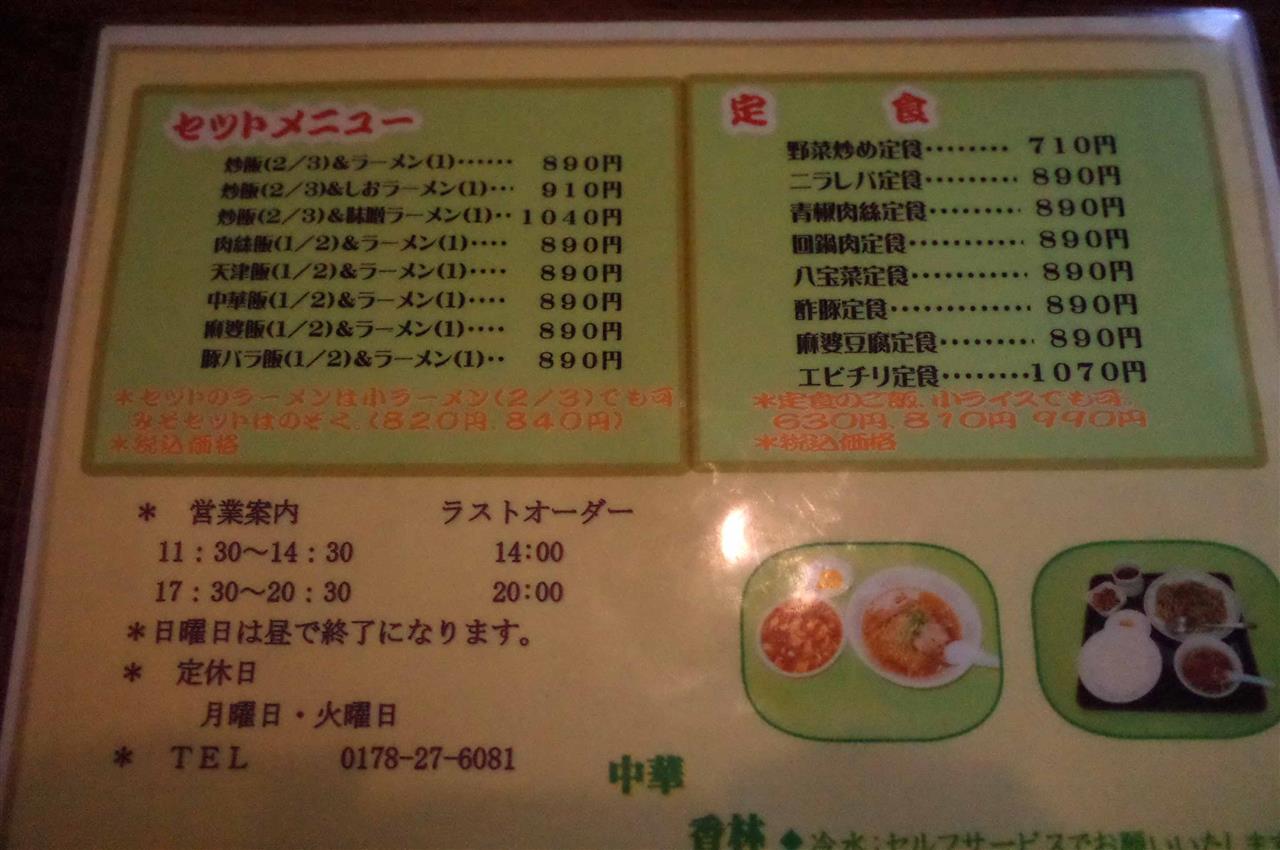 セットメニュー
炒飯(2/3)&ラーメン(1)‥‥‥ 890円
炒飯(2/3)&しおラーメン(1)‥・ 910円
炒飯(2/3)&味噌ラーメン(1)‥ 1040円
肉絲飯(1/2)&ラーメン(1)‥‥ 890円
天津飯(1/2)&ラーメン(1)‥‥ 890円
中華飯(1/2)&ラーメン(1)‥‥ 890円
麻婆飯(1/2)&ラーメン(1)‥‥ 890円
豚バラ飯(1/2)&ラーメン(1)‥ 890円
*セットのラーメンは小ラーメン(2/3)でも可
みそセットはのぞく。(820円、840円)
*税込価格
定食
野菜炒め定食‥‥‥‥ 710円
ニラレバ定食‥‥‥‥・ 890円
青椒肉絲定食‥‥‥‥・ 890円
回鍋肉定食‥‥‥‥‥・ 890円
八宝菜定食‥‥‥‥‥・ 890円
酢豚定食‥‥‥‥‥‥・ 890円
麻婆豆腐定食‥‥‥‥・ 890円
エビチリ定食‥‥‥‥・1070円
*定食のご飯、小ライスでも可。
630円、810円 990円
*税込価格
* 営業案内 ラストオーダー
11:30~14:30 14:00
17:30~20:30 20:00
*日曜日は昼で終了になります。
* 定休日
月曜日・火曜日
* TEL 0178-27-6081
中華
香林 ◆冷水:セルフサービスでお願いいたします